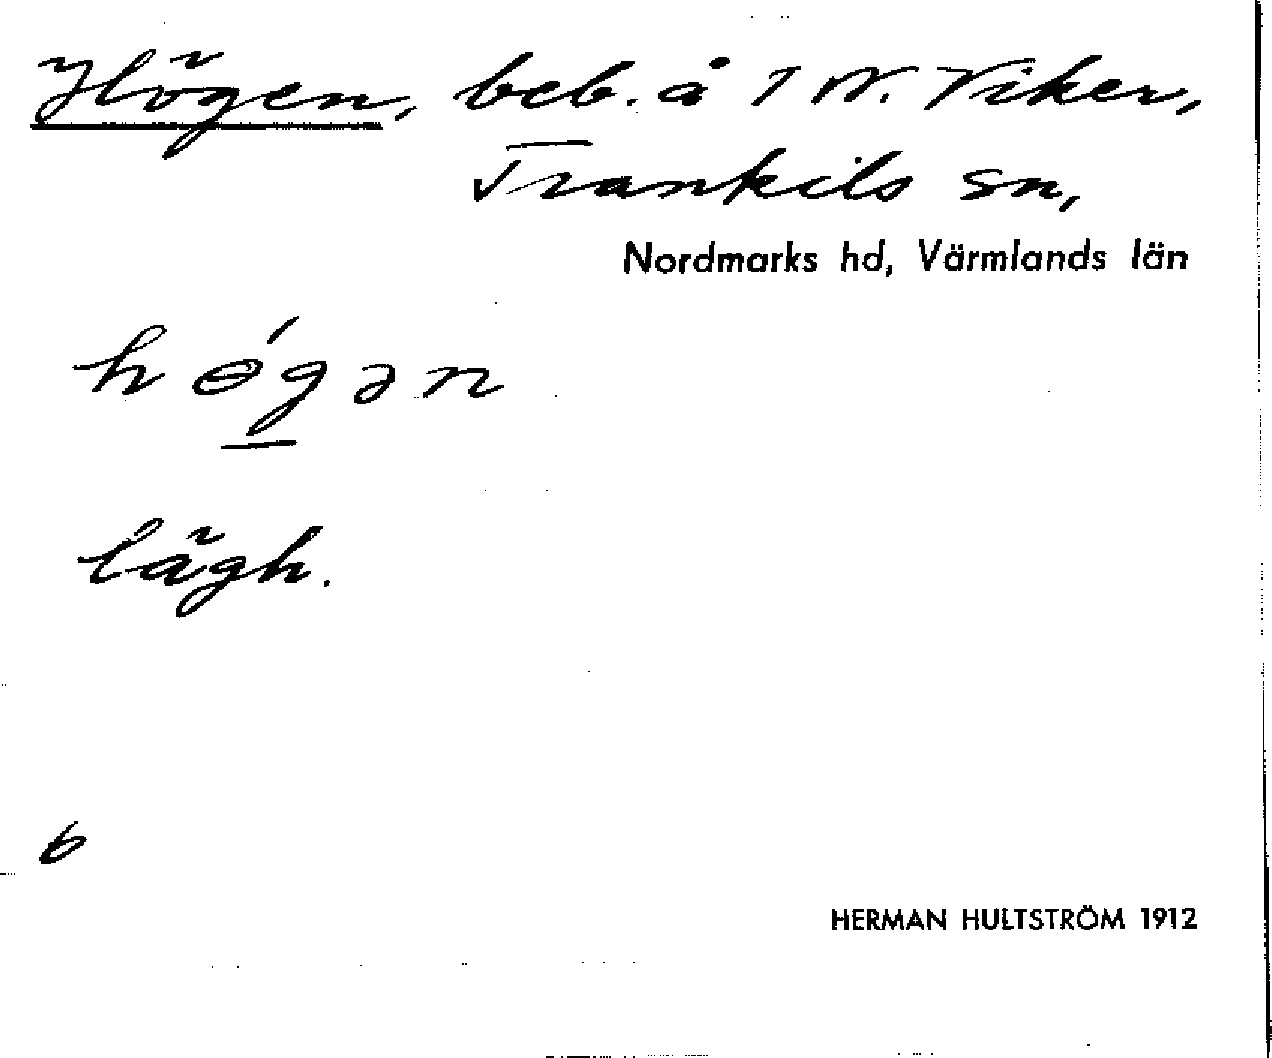 Högen, beb. å 1 N. Viker,
Trankils sn,
Nordmarks hd, Värmlands län
hɵ́gən
lägh.
6
HERMAN HULTSTRÖM 1912